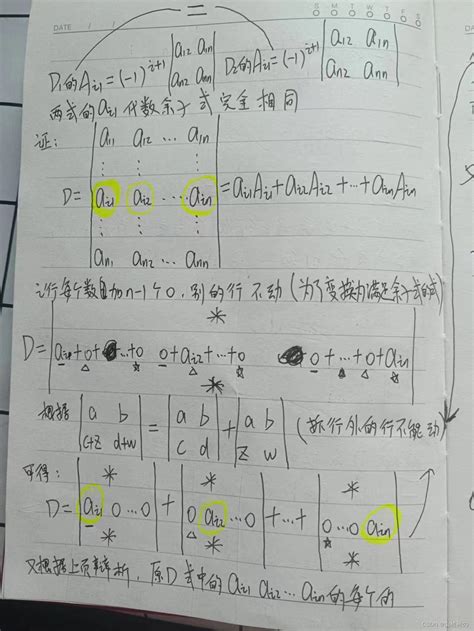 DATE / /
S M T W T F S
=
D₁的Aᵢ₁=(-1)^{i+1} |a₁₂ a₁ₙ; aₙ₂ aₙₙ| D₂的Aᵢ₁=(-1)^{i+1} |a₁₂ a₁ₙ; aₙ₂ aₙₙ|
两式的aᵢ₁代数余子式完全相同
证:
a₁₁ a₁₂ … a₁ₙ
⋮ ⋮ ⋮
D= aᵢ₁ aᵢ₂ … aᵢₙ =aᵢ₁Aᵢ₁+aᵢ₂Aᵢ₂+…+aᵢₙAᵢₙ
⋮ ⋮ ⋮
aₙ₁ aₙ₂ … aₙₙ
i行每个数加n-1个0,别的行不动(为了变换为满足余子式的式)
*
D= aᵢ₁+0+…+0 0+aᵢ₂+…+0 0+…+0+aᵢₙ
*
根据 |a b; c+z d+w| = |a b; c d| + |a b; z w| (拆行外的行不能动)
可得: * * *
D= |aᵢ₁ 0…0| + |0 aᵢ₂…0| +…+ |0…0 aᵢₙ|
* * *
又根据上页辩析,原D式中的aᵢ₁ aᵢ₂ … aᵢₙ的每个的